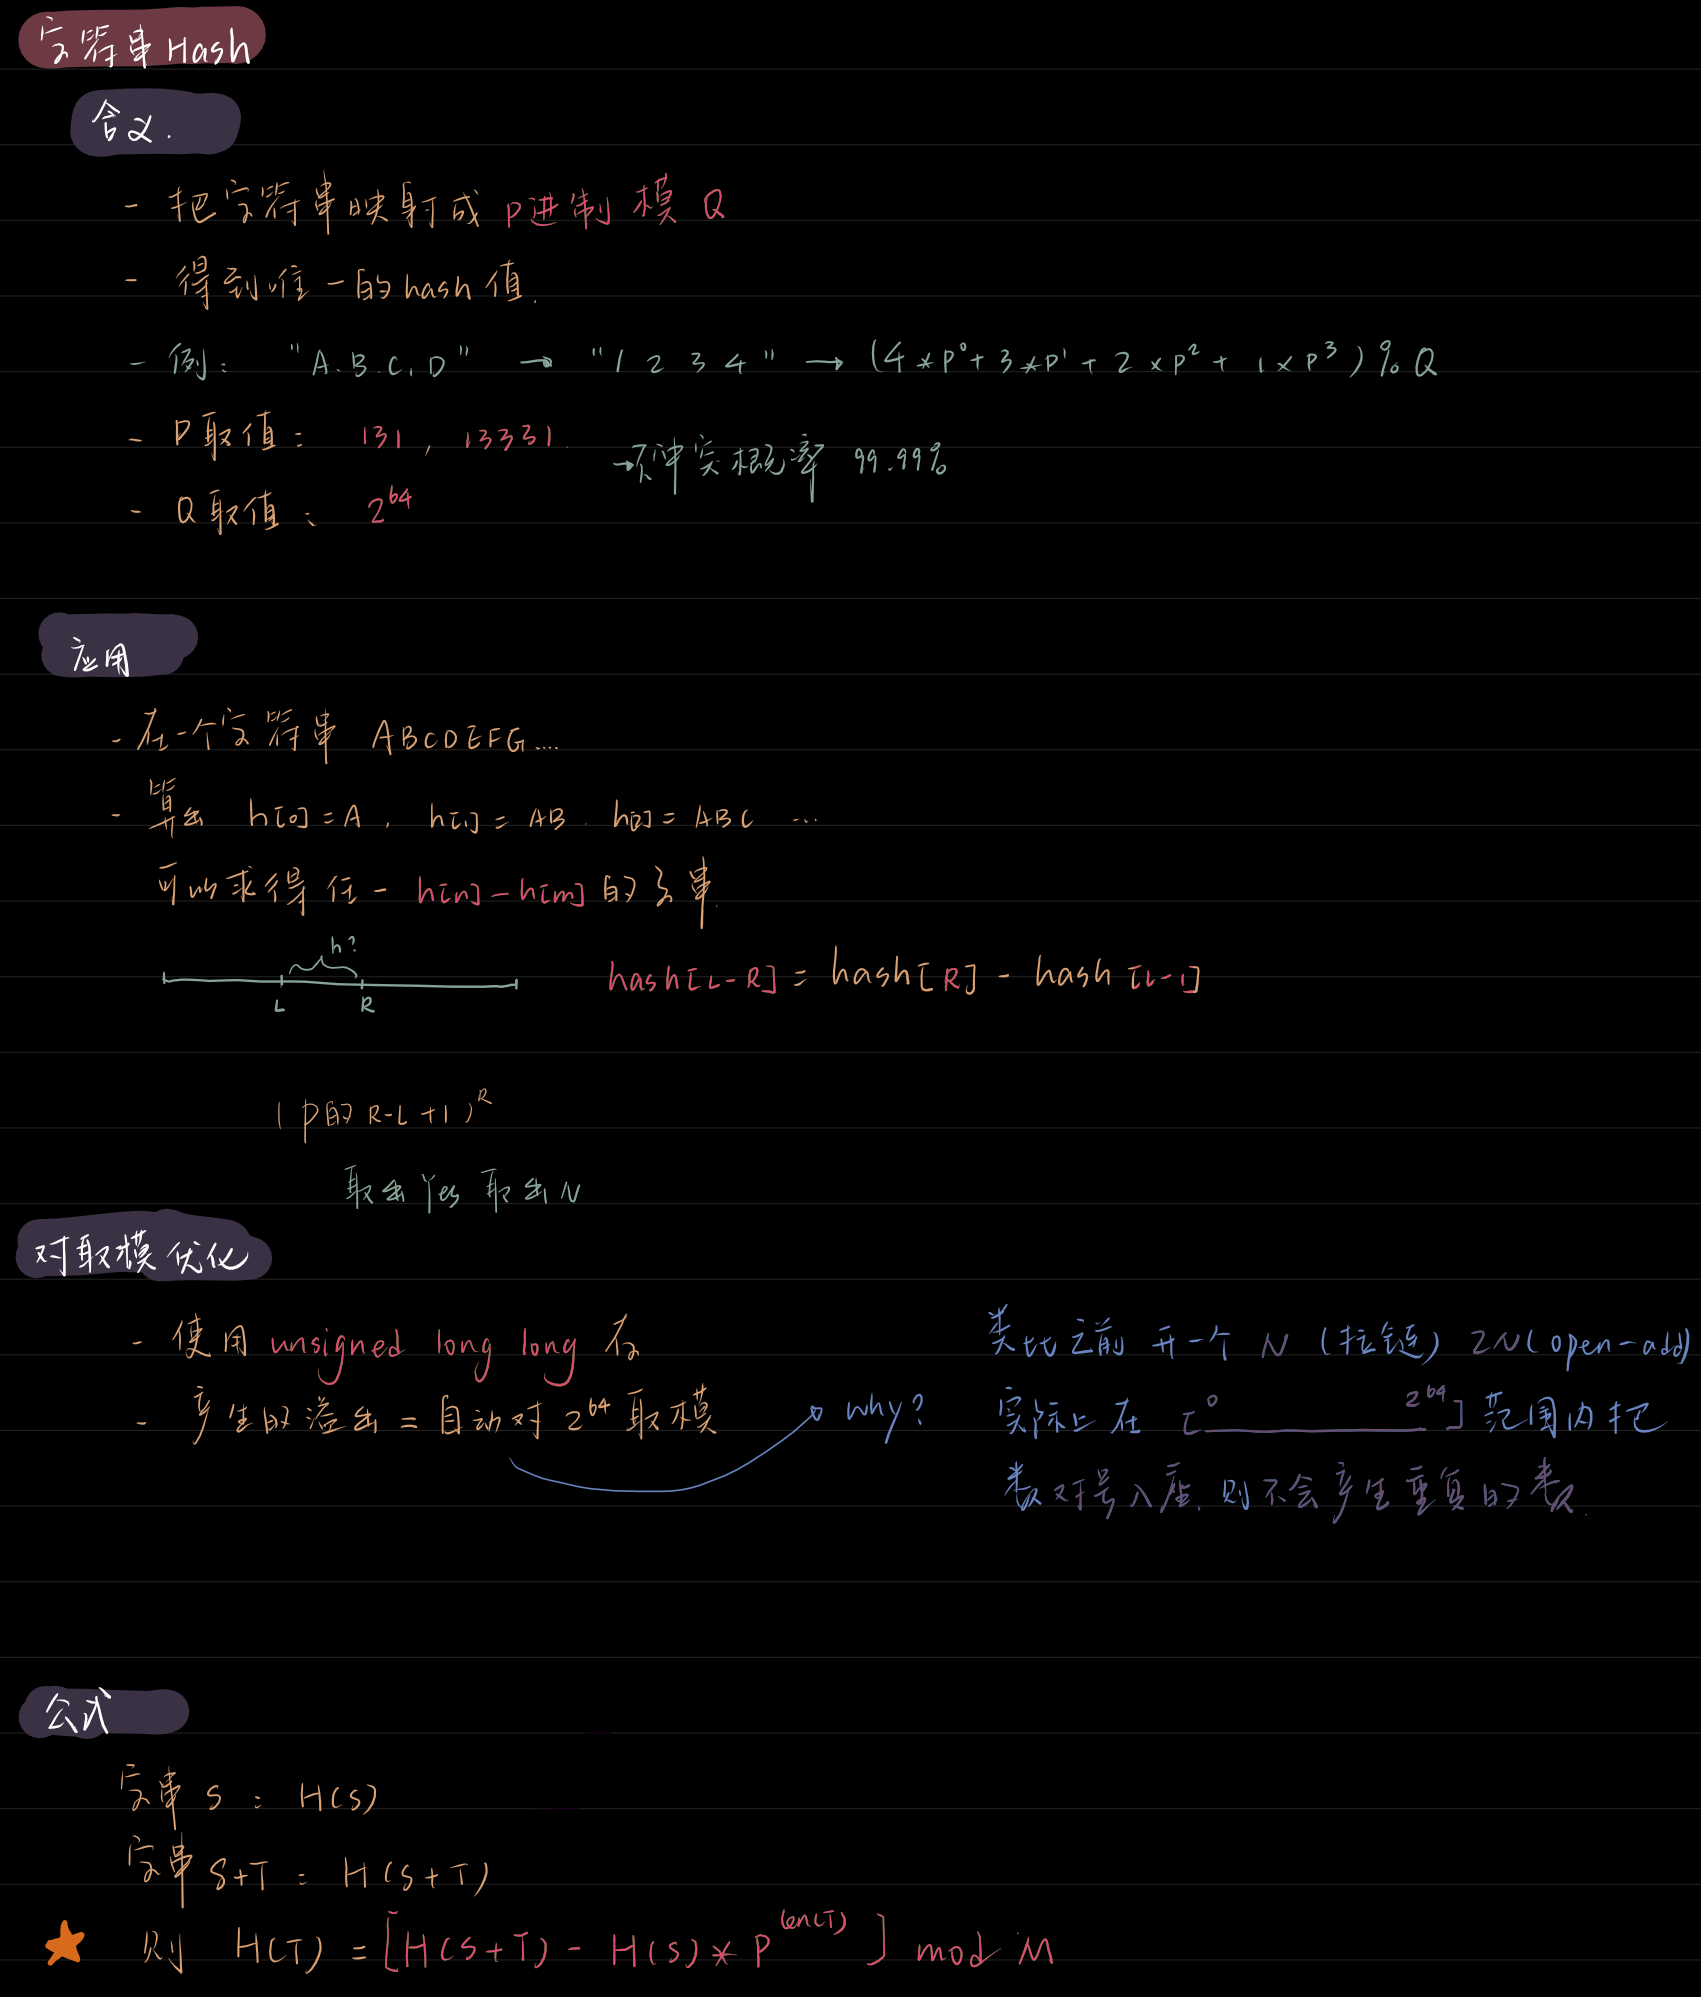 字符串Hash
含义.
- 把字符串映射成 P进制 模 Q
- 得到唯一的hash值.
- 例: "A.B.C.D" → "1 2 3 4" → (4*P⁰+3*P¹+2×P²+1×P³)%Q
- P取值: 131, 13331.
→ 冲突概率 99.99%
- Q取值: 2⁶⁴
应用
- 在一个字符串 ABCDEFG....
- 算出 h[0]=A, h[1]=AB. h[2]=ABC ...
可以求得任一 h[n]-h[m]的子串.
h?
L R
hash[L-R] = hash[R] - hash[L-1]
(P的R-L+1)ᴿ
取出Yes 取出N
对取模优化
- 使用 unsigned long long 存
- 产生的溢出 = 自动对 2⁶⁴ 取模
why?
类比之前 开一个 N (拉链) 2N(open-add)
实际上在 [0 2⁶⁴] 范围内把
数对号入座, 则不会产生重复的数.
公式
字串 S : H(S)
字串 S+T : H(S+T)
则 H(T) = [H(S+T) - H(S)*P^len(T)] mod M